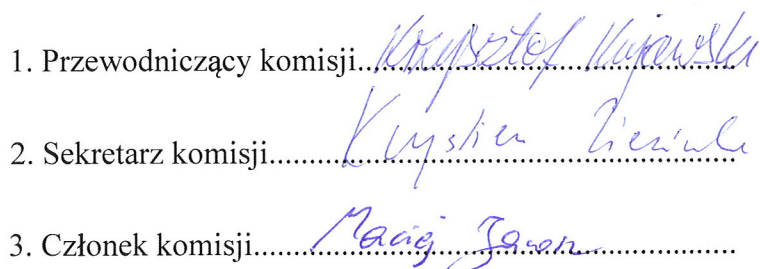 1. Przewodniczący komisji..........Krzysztof Kujawski
2. Sekretarz komisji..........Krystian
3. Członek komisji..........Maciej